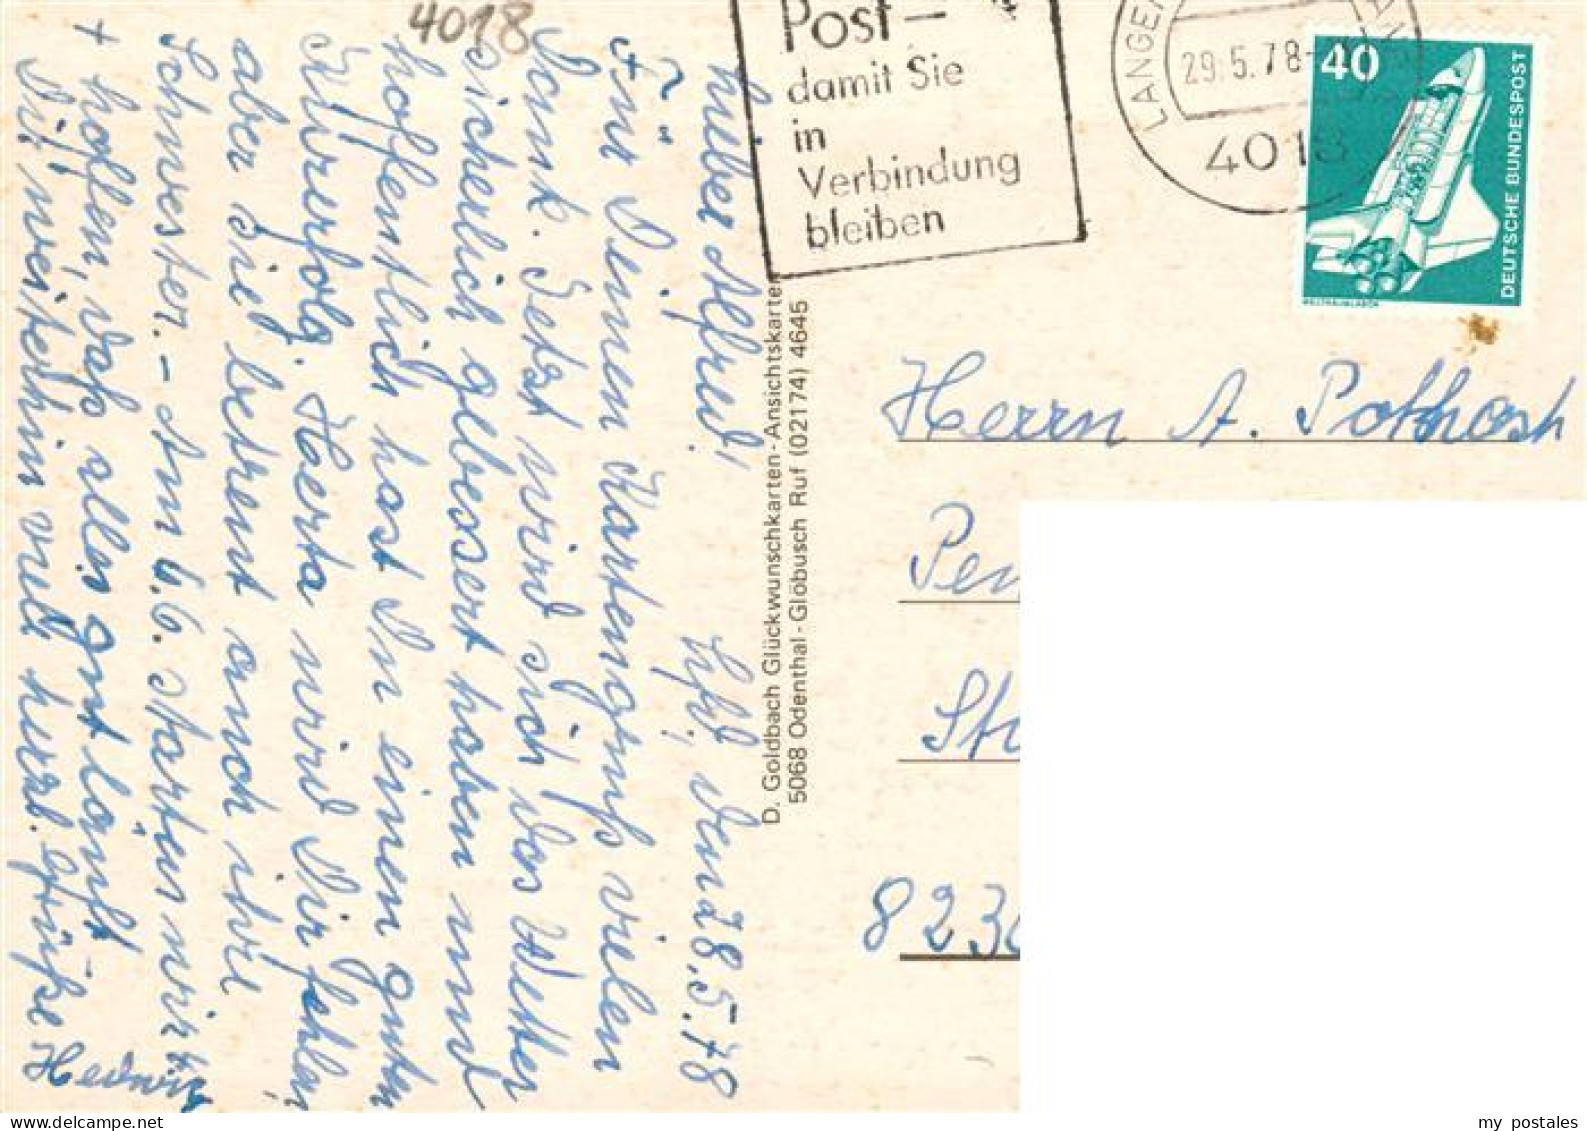 4018
Post –
damit Sie
in
Verbindung
bleiben
29.5.78
4018
40
DEUTSCHE BUNDESPOST
WELTRAUMLABOR
Lgfd., den 28.5.78
Lieber Alfred!
Für Deinen Kartengruß vielen
Dank. Jetzt wird sich das Wetter
sicherlich gebessert haben und
hoffentlich hast Du einen guten
Kurerfolg. Herta wird Dir fehlen,
aber sie betreut auch ihre
Schwester. – Am 6.6. starten wir
+ hoffen, daß alles gut läuft.
Dir weiterhin viele herzl. Grüße
Hedwig
D. Goldbach Glückwunschkarten-Ansichtskarten
5068 Odenthal-Glöbusch Ruf (02174) 4645
Herrn A. Potthost
Pen
Stu
823
my postales